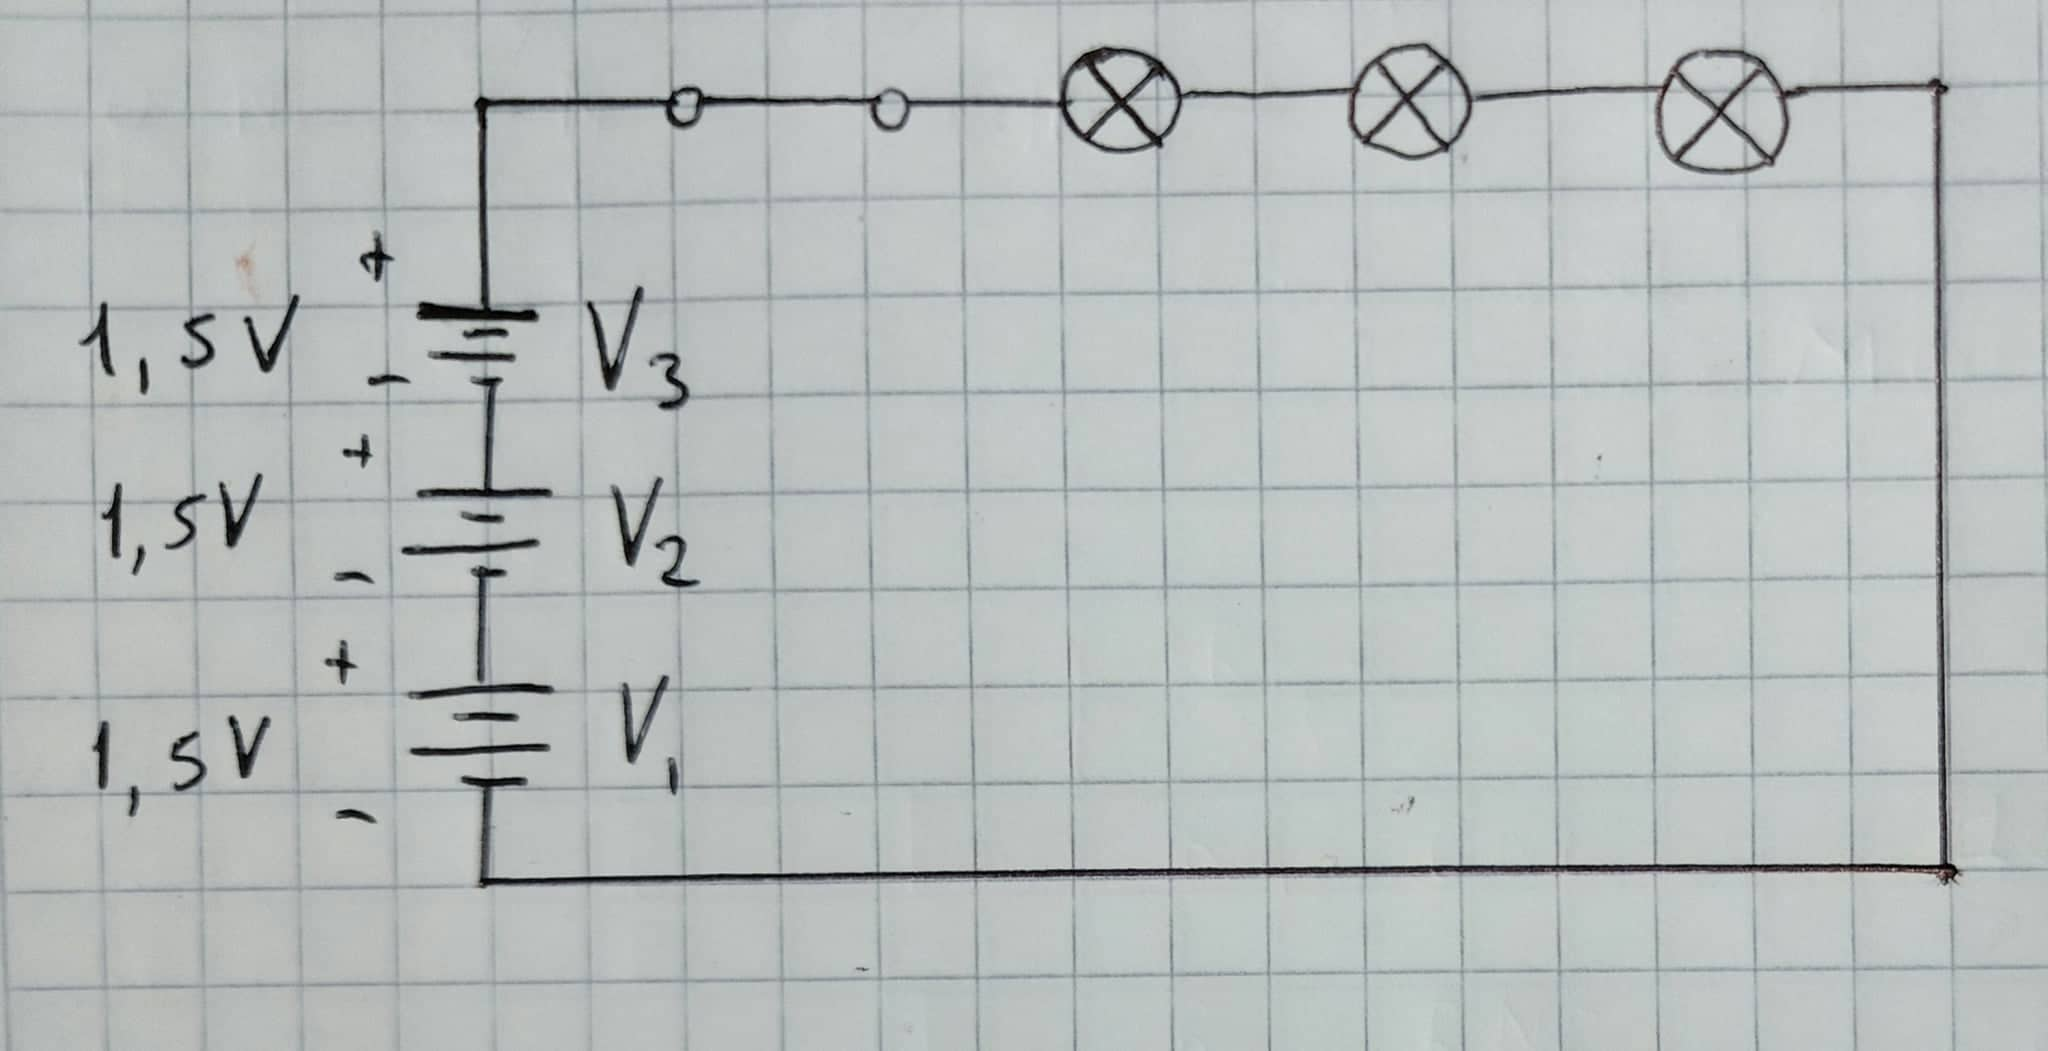 +
1,5V V3
-
+
1,5V V2
-
+
1,5V V1
-